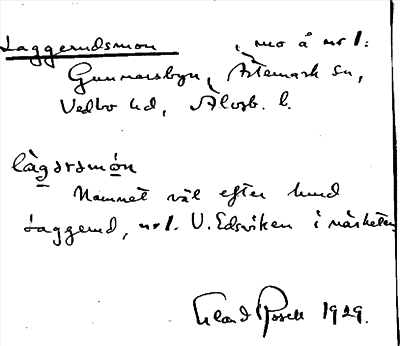 Laggerudsmon, mo å nr 1:
Gunnarsbyn, Ärtemark sn,
Vedbo hd, Älvsb. l.
làgərsmón
Namnet väl efter hmd
Laggerud, nr 1. V. Edsviken i närheten
Erland Rosell 1929.